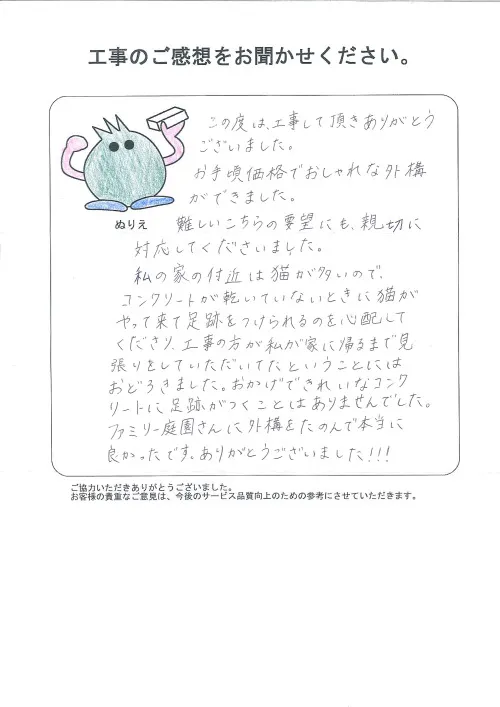 工事のご感想をお聞かせください。
この度は、工事して頂きありがとう
ございました。
お手頃価格でおしゃれな外構
ができました。
ぬりえ
難しいこちらの要望にも、親切に
対応してくださいました。
私の家の付近は猫が多いので、
コンクリートが乾いていないときに猫が
やって来て足跡をつけられるのを心配して
くださり、工事の方が私が家に帰るまで見
張りをしていただいてたということには
おどろきました。おかげできれいなコンク
リートに足跡がつくことはありませんでした。
ファミリー庭園さんに外構をたのんで本当に
良かったです。ありがとうございました!!!
ご協力いただきありがとうございました。
お客様の貴重なご意見は、今後のサービス品質向上のための参考にさせていただきます。